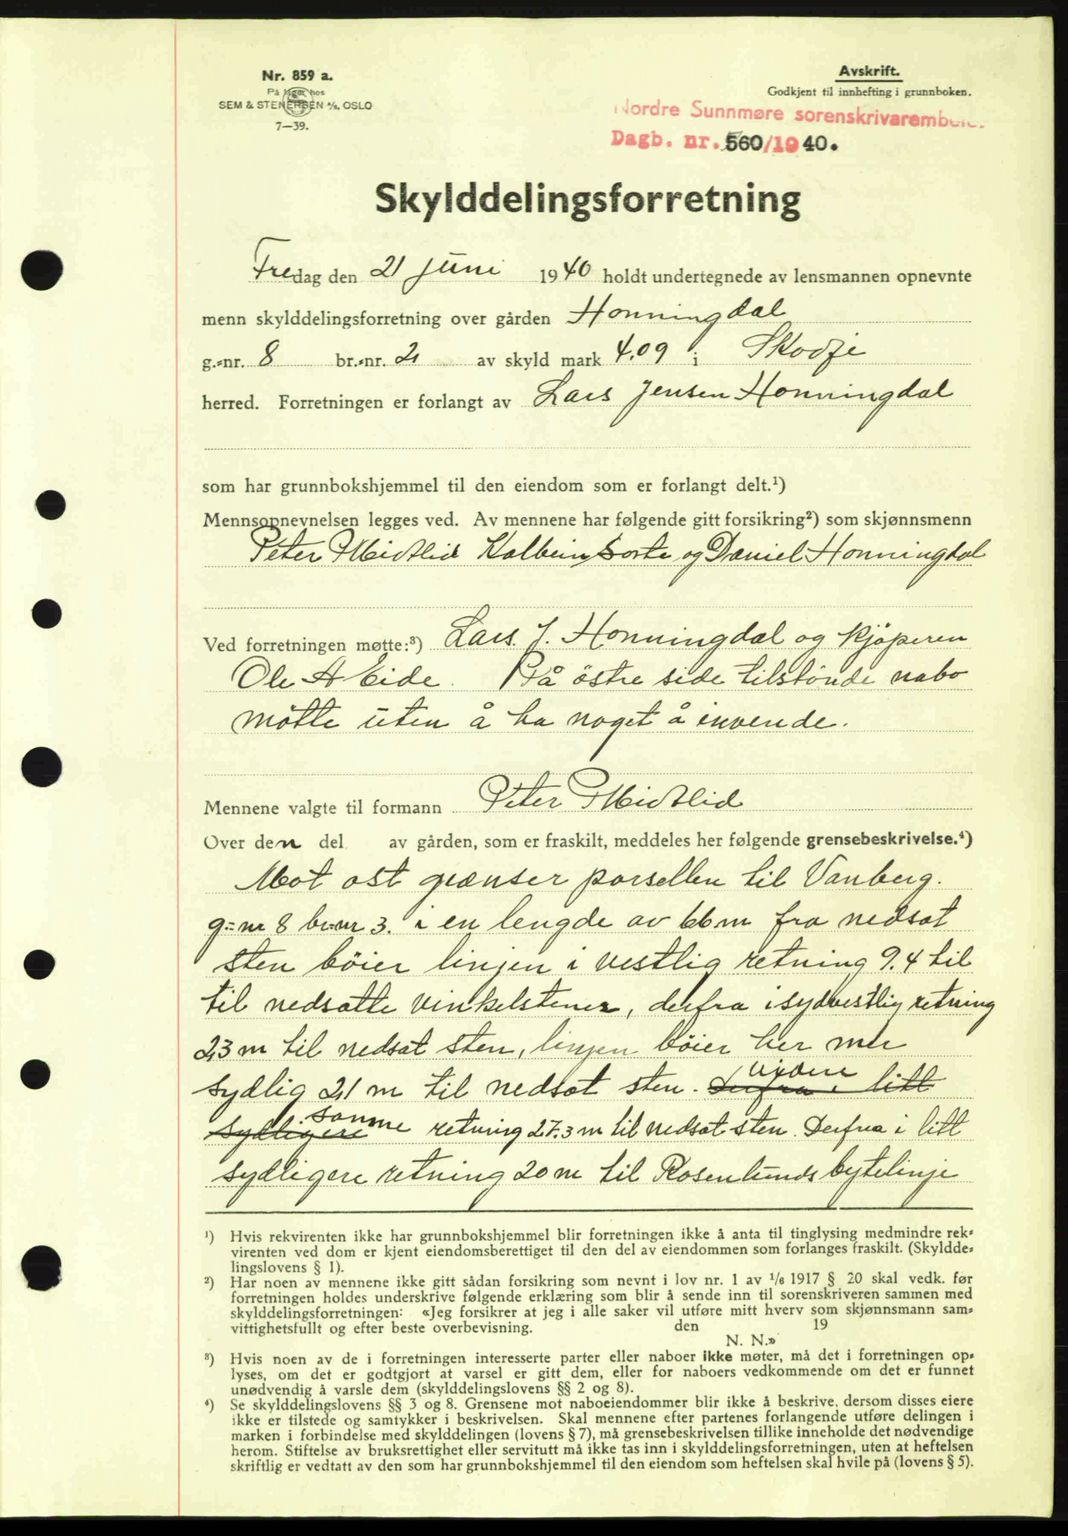 Nr. 859 a.
På lager hos
SEM & STENERSEN A/S, OSLO
7—39.
Avskrift.
Godkjent til innhefting i grunnboken.
Nordre Sunnmøre sorenskrivarembete.
Dagb. nr. 560/1940.
Skylddelingsforretning
Fredag den 21 juni 1940 holdt undertegnede av lensmannen opnevnte
menn skylddelingsforretning over gården Honningdal
g.-nr. 8 br.-nr. 2 av skyld mark 4.09 i Skodje
herred. Forretningen er forlangt av Lars Jensen Honningdal
som har grunnbokshjemmel til den eiendom som er forlangt delt.¹)
Mennsopnevnelsen legges ved. Av mennene har følgende gitt forsikring²) som skjønnsmenn
Peter Midtlid Kolbein Sorte og Daniel Honningdal
Ved forretningen møtte:³) Lars. J. Honningdal og kjöperen
Ole A Eide. På östre side tilstönde nabo
mötte uten å ha noget å invende.
Mennene valgte til formann Peter Midtlid
Over den del av gården, som er fraskilt, meddeles her følgende grensebeskrivelse.⁴)
Mot ost grænser parsellen til Vanberg.
g=nr 8 br=nr 3. i en lengde av 66 m fra nedsat
sten böier linjen i vestlig retning 9.4 til
til nedsatte vinkelstener, derfra i sydvestlig retning
23 m til nedsat sten, linjen böier her mer
sydlig 21 m til nedsat sten. Derfra i litt videre
sydligere samme retning 27.3 m til nedsat sten. Derfra i litt
sydligere retning 20 m til Rosenlunds bytelinje
¹) Hvis rekvirenten ikke har grunnbokshjemmel blir forretningen ikke å anta til tinglysing medmindre rek-
virenten ved dom er kjent eiendomsberettiget til den del av eiendommen som forlanges fraskilt. (Skyldde-
lingslovens § 1).
²) Har noen av mennene ikke gitt sådan forsikring som nevnt i lov nr. 1 av 1/6 1917 § 20 skal vedk. før
forretningen holdes underskrive følgende erklæring som blir å sende inn til sorenskriveren sammen med
skylddelingsforretningen: «Jeg forsikrer at jeg i alle saker vil utføre mitt hverv som skjønnsmann sam-
vittighetsfullt og efter beste overbevisning. den 19
N. N.»
³) Hvis noen av de i forretningen interesserte parter eller naboer ikke møter, må det i forretningen op-
lyses, om det er godtgjort at varsel er gitt dem, eller for naboers vedkommende om det er funnet
unødvendig å varsle dem (skylddelingslovens §§ 2 og 8).
⁴) Se skylddelingslovens §§ 3 og 8. Grensene mot naboeiendommer blir ikke å beskrive, dersom disses eiere
ikke er tilstede og samtykker i beskrivelsen. Skal mennene efter partenes forlangende utføre delingen i
marken i forbindelse med skylddelingen (lovens § 7), må grensebeskrivelsen tillike inneholde det nødvendige
herom. Stiftelse av bruksrettighet eller servitutt må ikke tas inn i skylddelingsforretningen, uten at heftelsen
skriftlig er vedtatt av den som har grunnbokshjemmel til den eiendom som heftelsen skal hvile på (lovens § 5).